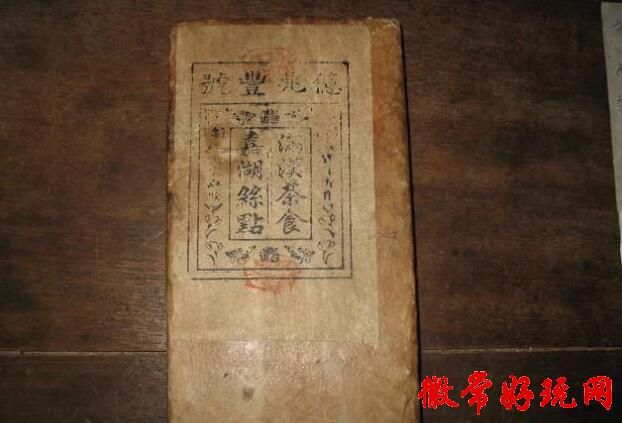 德兆豐號
滿漢茶食
嘉湖絲點
徽常好玩网